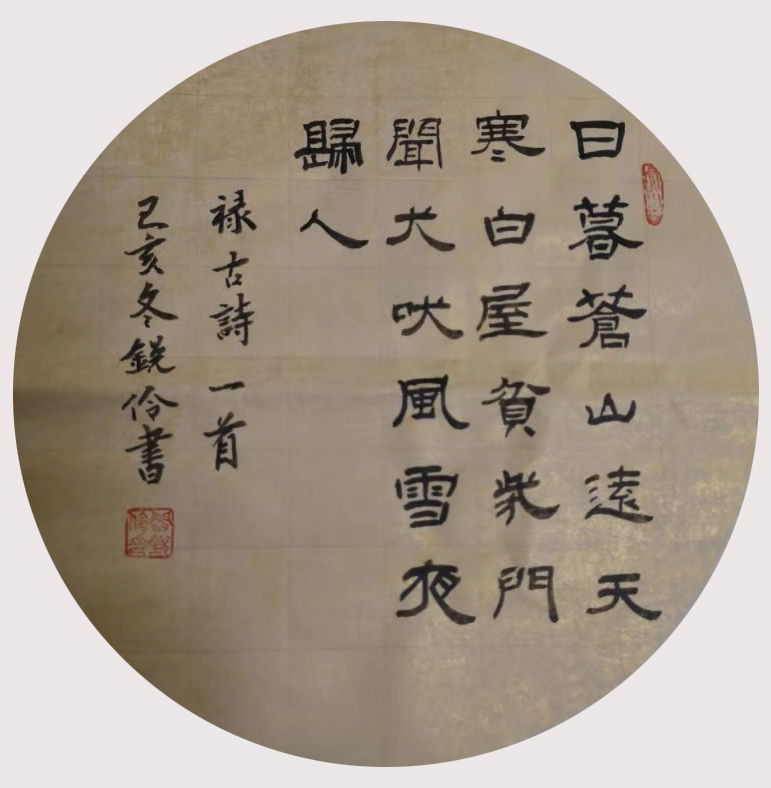 日暮蒼山遠天
寒白屋貧柴門
聞犬吠風雪夜
歸人
禄古詩一首
己亥冬鋭伶書